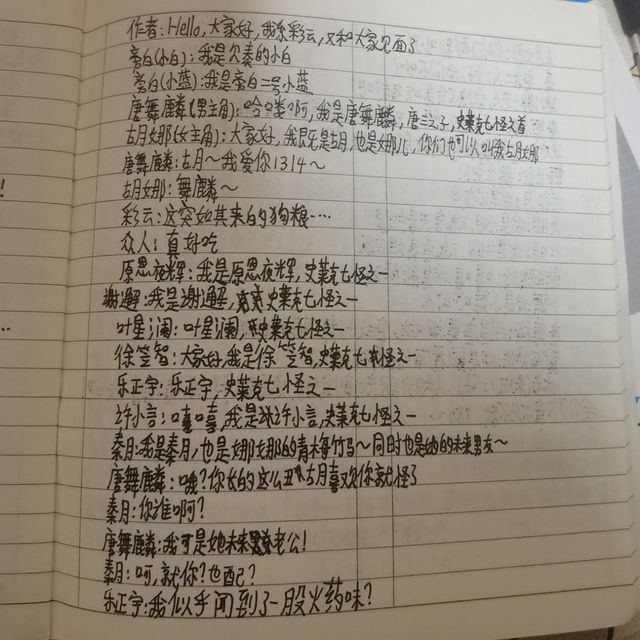 作者:Hello,大家好,我系彩云,又和大家见面了
旁白(小白):我是欠奏的小白
旁白(小蓝):我是旁白二号小蓝
唐舞麟(男主角):哈喽啊,我是唐舞麟,唐三之子,史莱克七怪之首
古月娜(女主角):大家好,我既是古月,也是娜儿,你们也可以叫我古月娜
唐舞麟:古月~我爱你1314~
古月娜:舞麟~
彩云:这突如其来的狗粮…
众人:真好吃
原恩夜辉:我是原恩夜辉,史莱克七怪之一
谢邂:我是谢邂,史莱克七怪之一
叶星澜:叶星澜,史莱克七怪之一
徐笠智:大家好,我是徐笠智,史莱克七怪之一
乐正宇:乐正宇,史莱克七怪之一
许小言:嘻嘻,我是许小言,史莱克七怪之一
秦月:我是秦月,也是娜娜的青梅竹马~同时也是她的未来男友~
唐舞麟:哦?你长的这么丑,古月喜欢你就怪了
秦月:你谁啊?
唐舞麟:我可是她未来老公!
秦月:呵,就你?也配?
乐正宇:我似乎闻到了一股火药味?